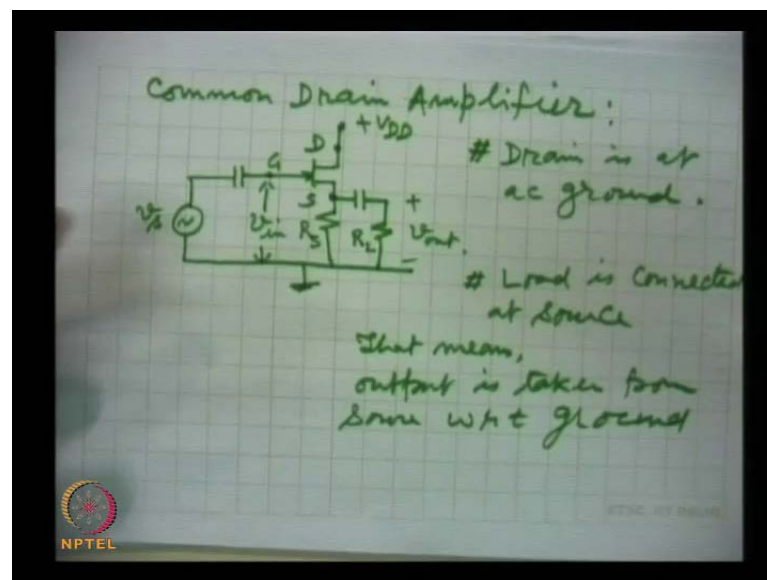 Common Drain Amplifier :
+VDD
D
G
S
vs
vin
RS
RL
+
vout.
-
# Drain is at
ac ground.
# Load is connected
at source
That means,
output is taken from
source wrt ground
NPTEL